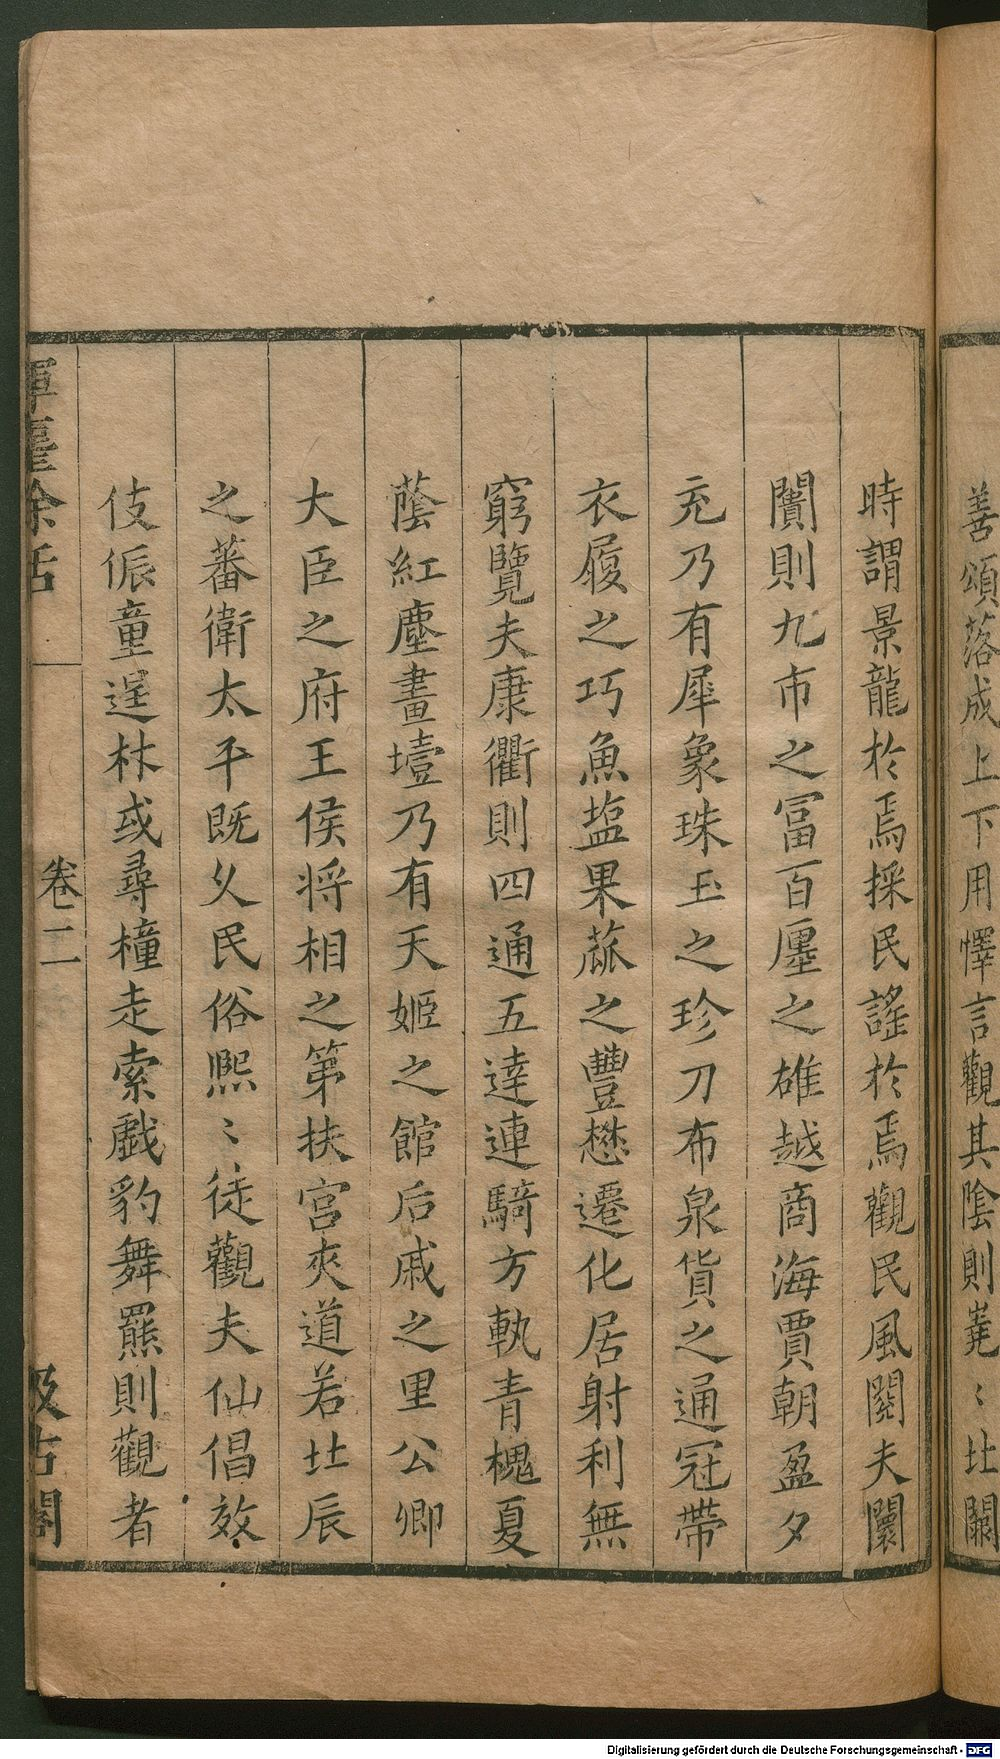 善頌落成上下用懌言觀其陰則嶤〻北闕
時謂景龍於焉採民謠於焉觀民風闚夫闤
闠則九市之冨百廛之雄越商海賈朝盈夕
充乃有犀象珠玉之珍刀布泉貨之通冠帶
衣履之巧魚塩果蓏之豐懋遷化居射利無
窮覽夫康衢則四通五達連騎方軌青槐夏
蔭紅塵晝壒乃有天姬之館后戚之里公卿
大臣之府王侯將相之第扶宮夾道若北辰
之蕃衛太平既乆民俗熈〻徒觀夫仙倡效
伎侲童逞材或尋橦走索戲豹舞羆則觀者
揮麈餘話
卷二
汲古閣
Digitalisierung gefördert durch die Deutsche Forschungsgemeinschaft - DFG